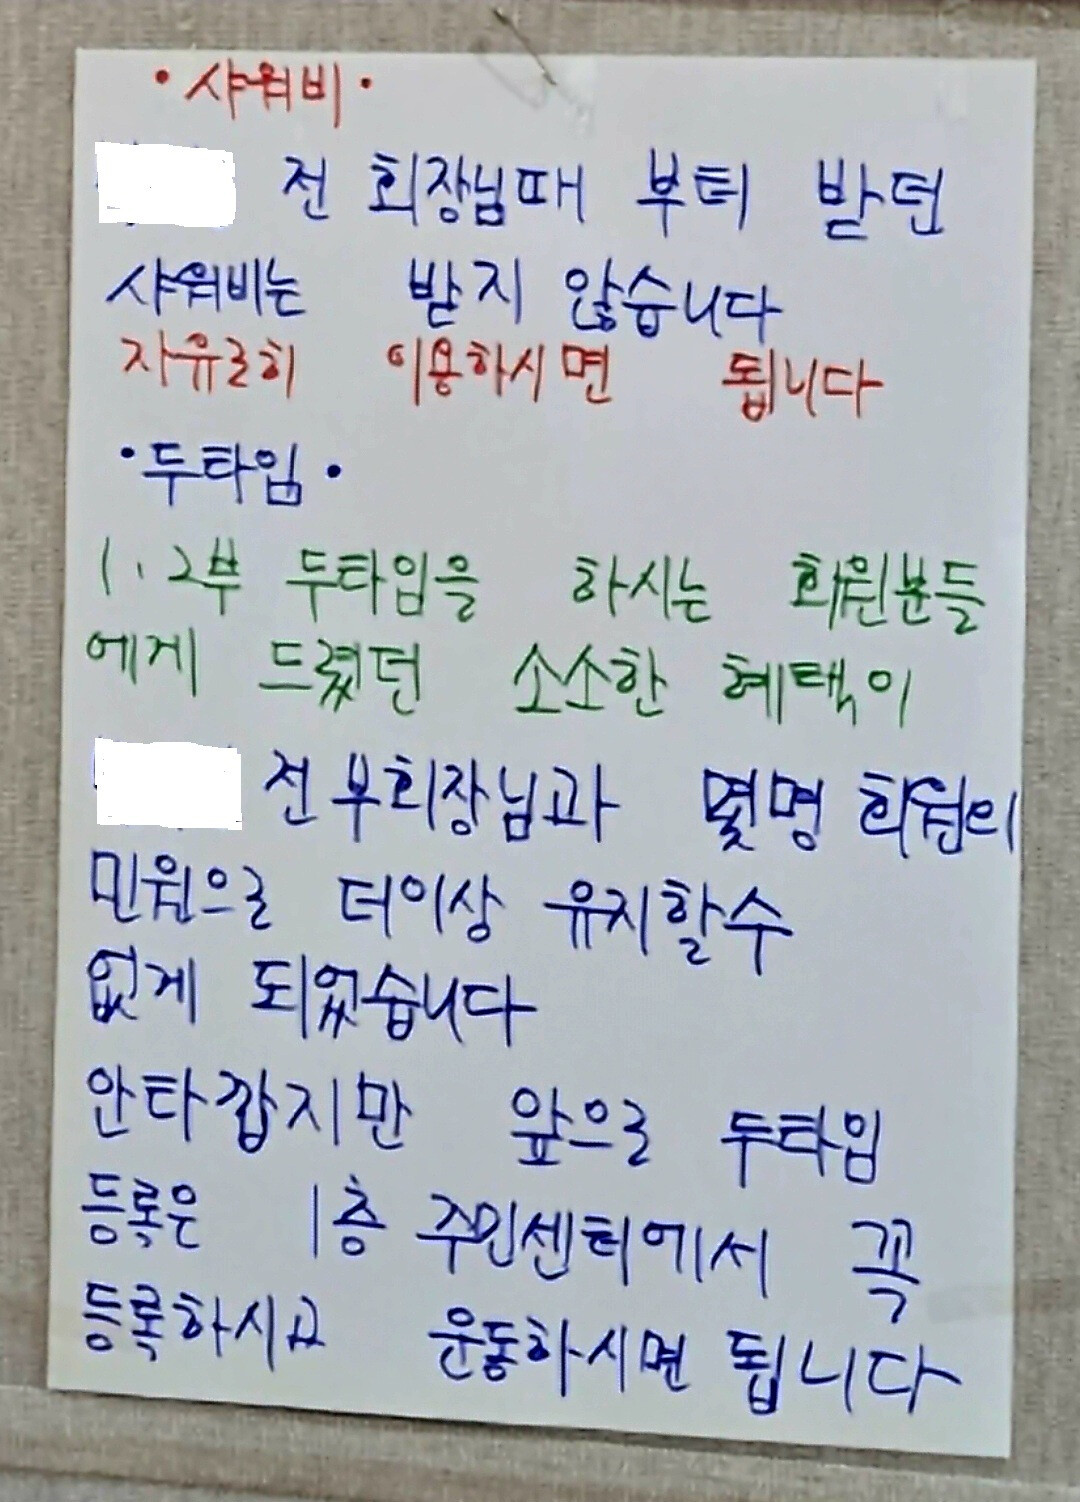 ·샤워비·
전 회장님때 부터 받던
샤워비는 받지 않습니다
자유로히 이용하시면 됩니다
·두타임·
1.2부 두타임을 하시는 회원분들
에게 드렸던 소소한 혜택이
전 부회장님과 몇명 회원의
민원으로 더이상 유지할수
없게 되었습니다
안타깝지만 앞으로 두타임
등록은 1층 주민센터에서 꼭
등록하시고 운동하시면 됩니다